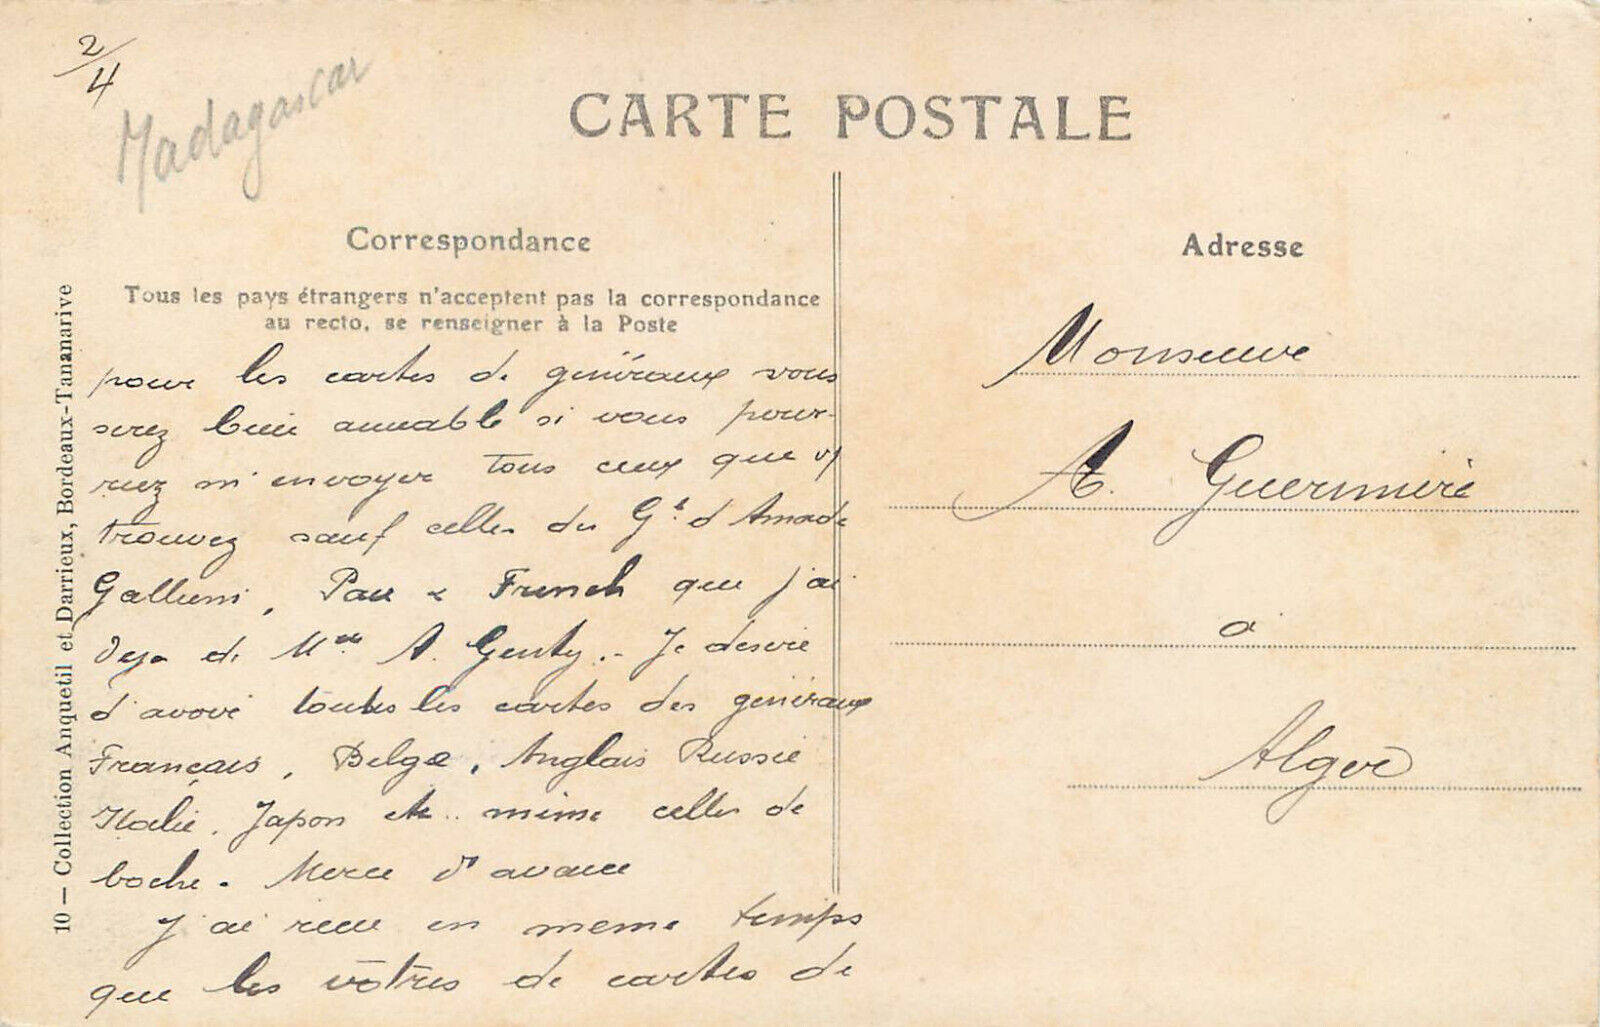 2/4
Madagascar
CARTE POSTALE
Correspondance
Tous les pays étrangers n'acceptent pas la correspondance
au recto, se renseigner à la Poste
pour les cartes de généraux vous
serez bien aimable si vous pour-
riez m'envoyer tous ceux que vs
trouvez sauf celles du Gt d'Amade
Gallieni, Pau & French que j'ai
deja de Mr A. Genty.- Je desire
d'avoir toutes les cartes des généraux
Français, Belge, Anglais Russie
Italie, Japon etc.. même celles de
boche. Merci d'avance
J'ai reçu en meme temps
que les vôtres de cartes de
Adresse
Monsieur
A. Guermieri
à
Alger
10 — Collection Anquetil et Darrieux, Bordeaux-Tananarive